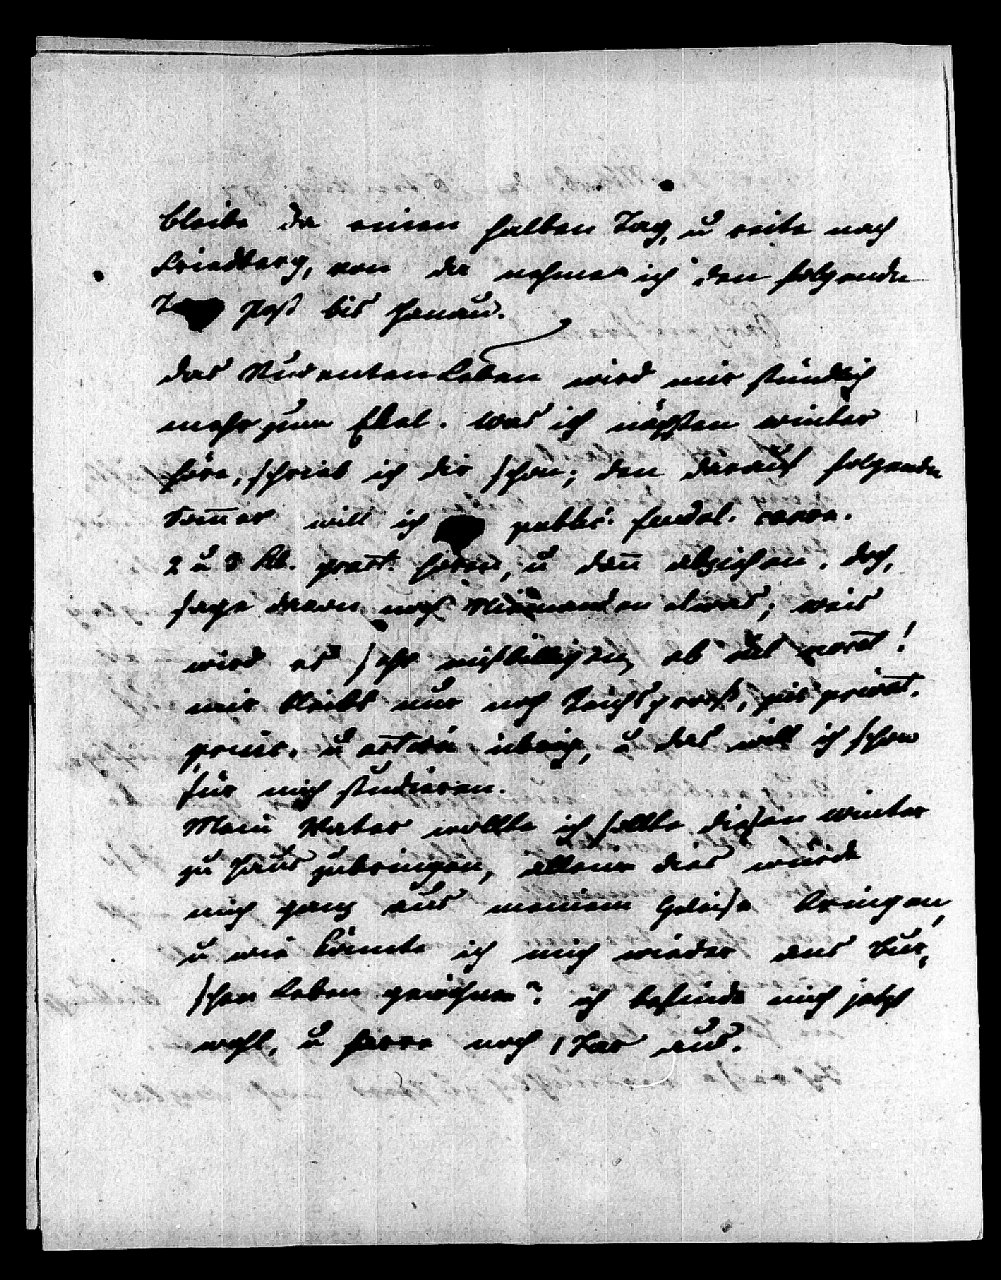 bleibe da einen halben Tag, u reite nach
Friedberg, von da nehme ich den folgenden
Post bis Hanau.
das Studenten Leben wird mir stündlich
mehr zum Ekel. Was ich nächsten winter
höre, schrieb ich dir schon; den darauf folgenden
Som̅er will ich publ. feudal.
2 u 3 hören, u dan̅ abziehen. doch,
sage davon noch Niemanden etwas;
wird es sehr misbilligen, ob das
mir bleibt nur noch privat.
u übrig, u das will ich schon
für mich studieren.
Mein Vater wollte ich sollte diesen winter
zu Haus zubringen, allein dies würde
mich ganz aus meinem Gleise bringen,
u wie könnte ich mich wieder ans Bur-
schen Leben gewöhnen? ich befinde mich jetzt
wohl, u harre noch 1 Jar aus.